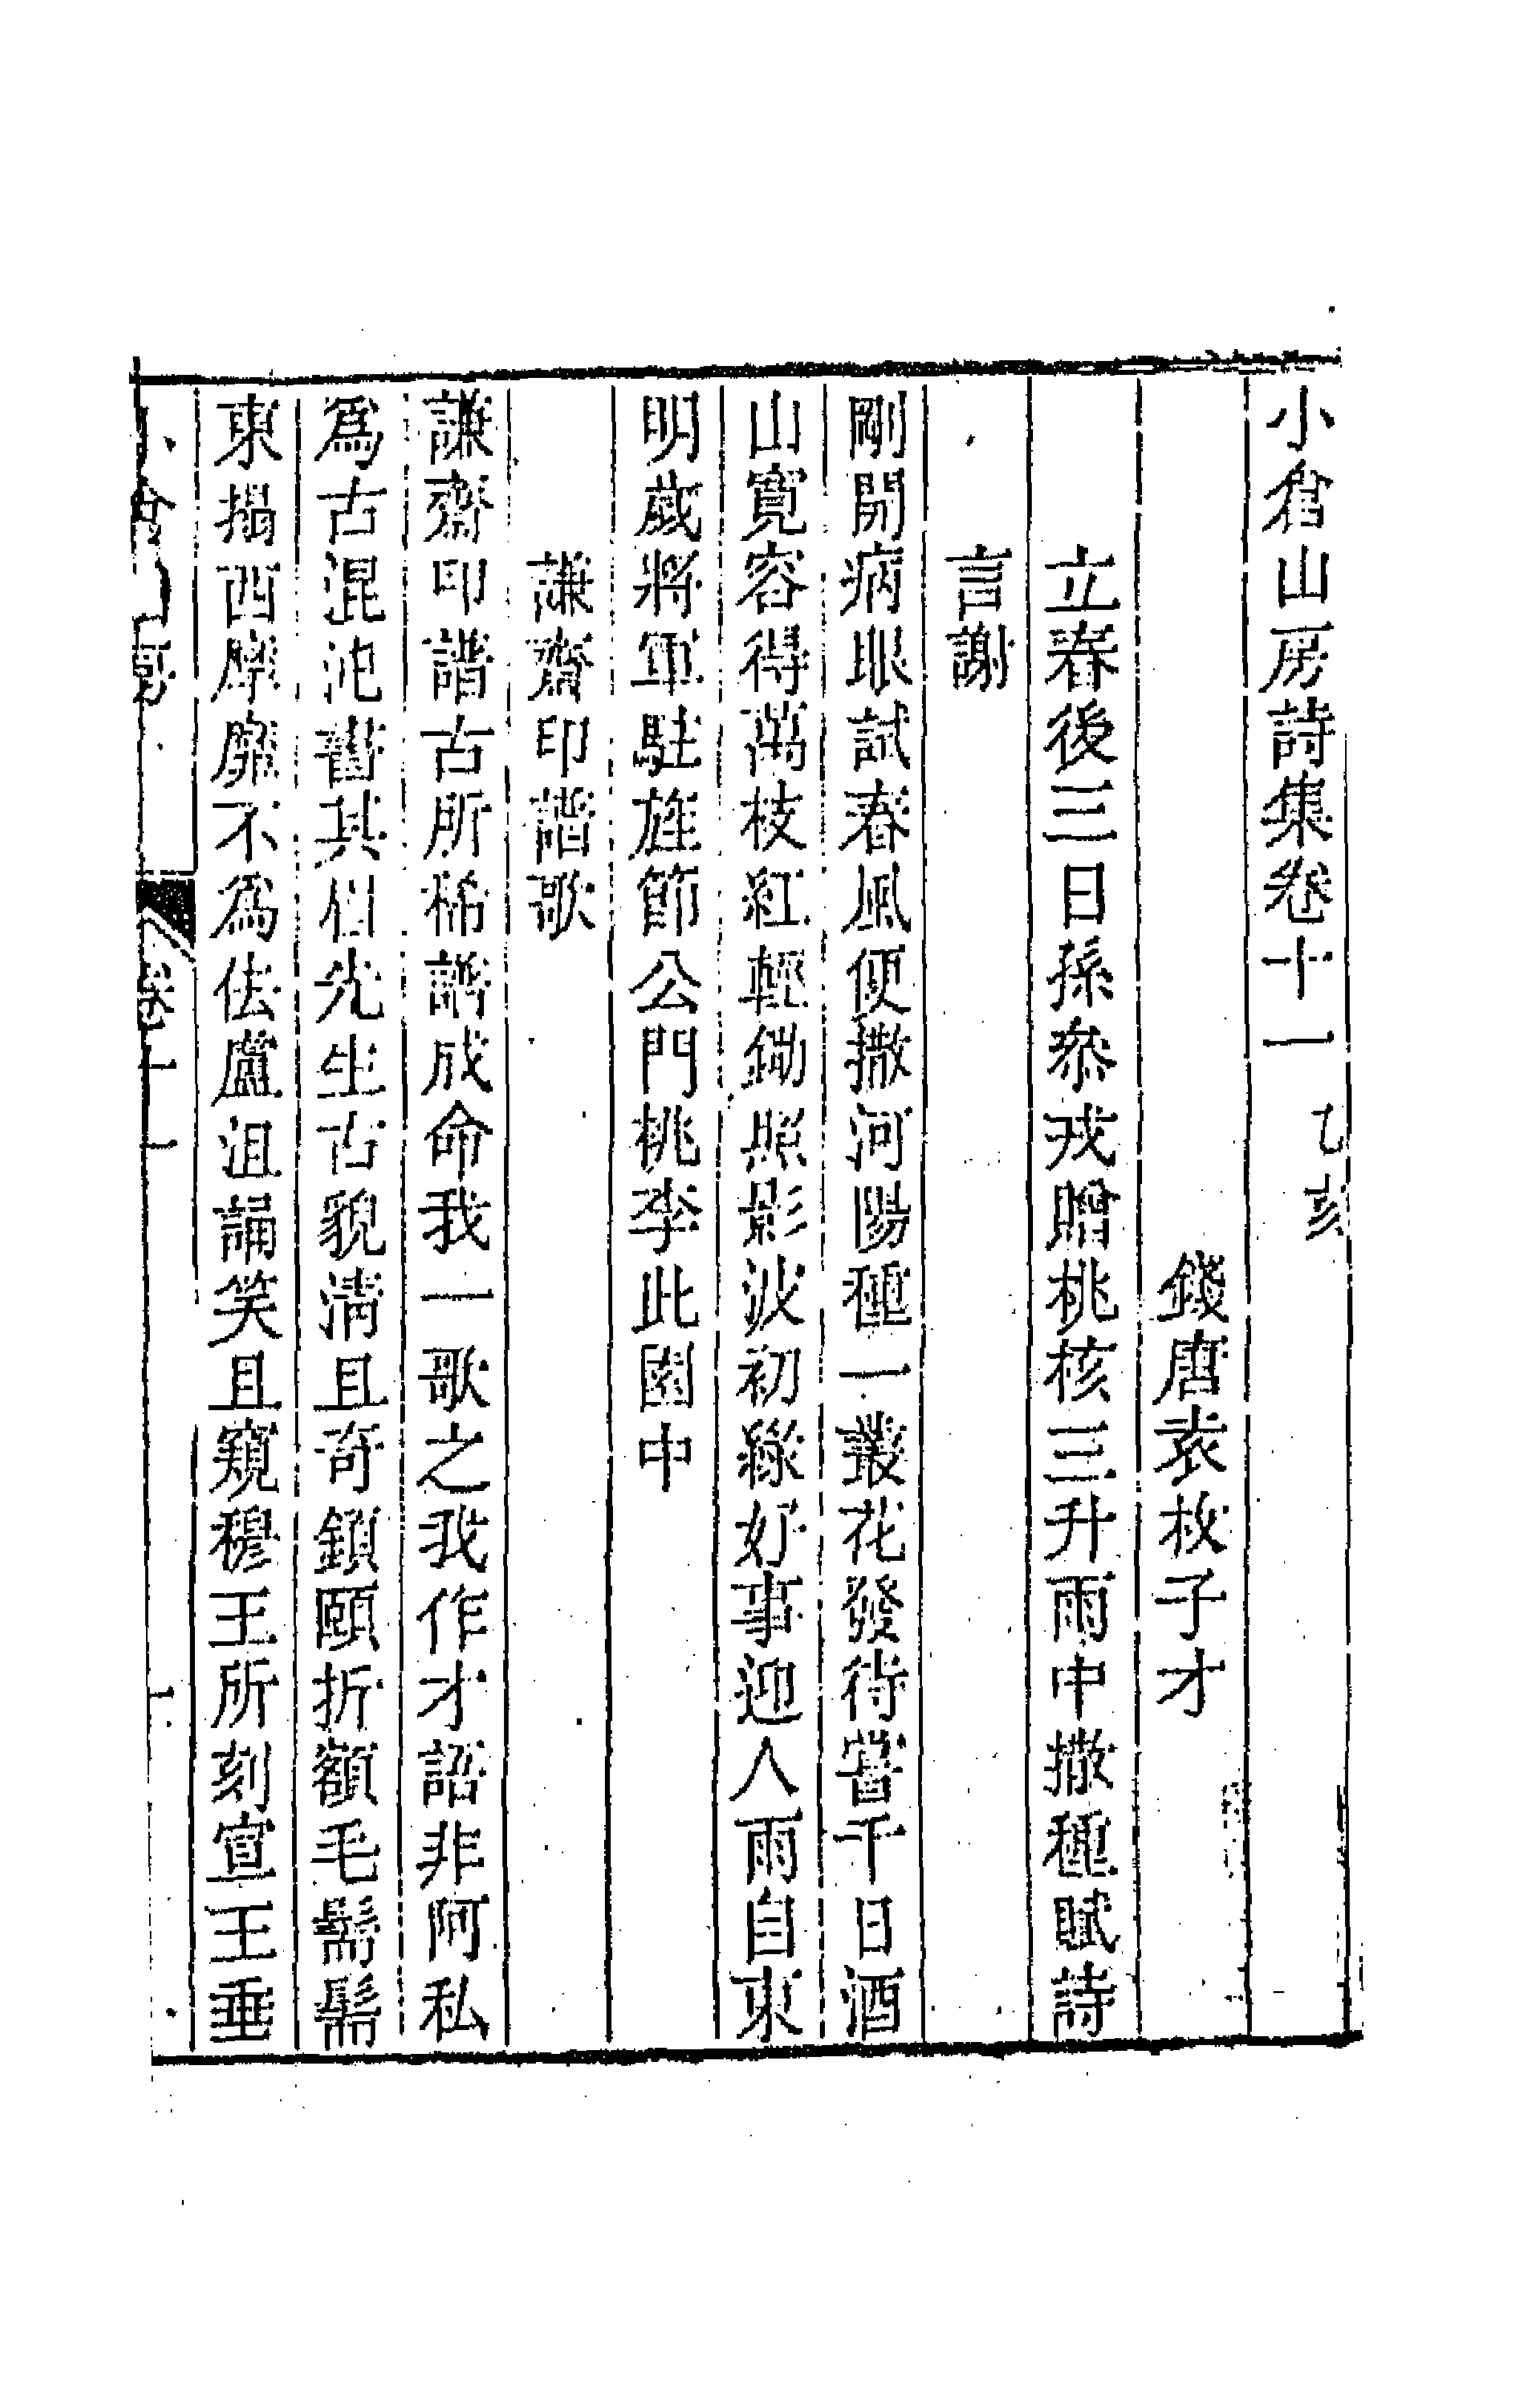 小倉山房詩集卷十一 乙亥
錢唐袁枚子才
立春後三日孫叅戎贈桃核三升雨中撒種賦詩
言謝
剛開病眼試春風便撒河陽種一叢花發待嘗千日酒
山寛容得萬枝紅輕鋤照影波初綠好事迎人雨自東
明歲將軍駐旌節公門桃李此園中
謙齋印譜歌
謙齋印譜古所稀譜成命我一歌之我作才語非阿私
爲古混沌譜其眉先生古貌淸且奇鎖頤折額毛鬗鬗
東搨西摩靡不爲佉盧沮誦笑且窺穆王所刻宣王垂
小倉山房
卷十一
一